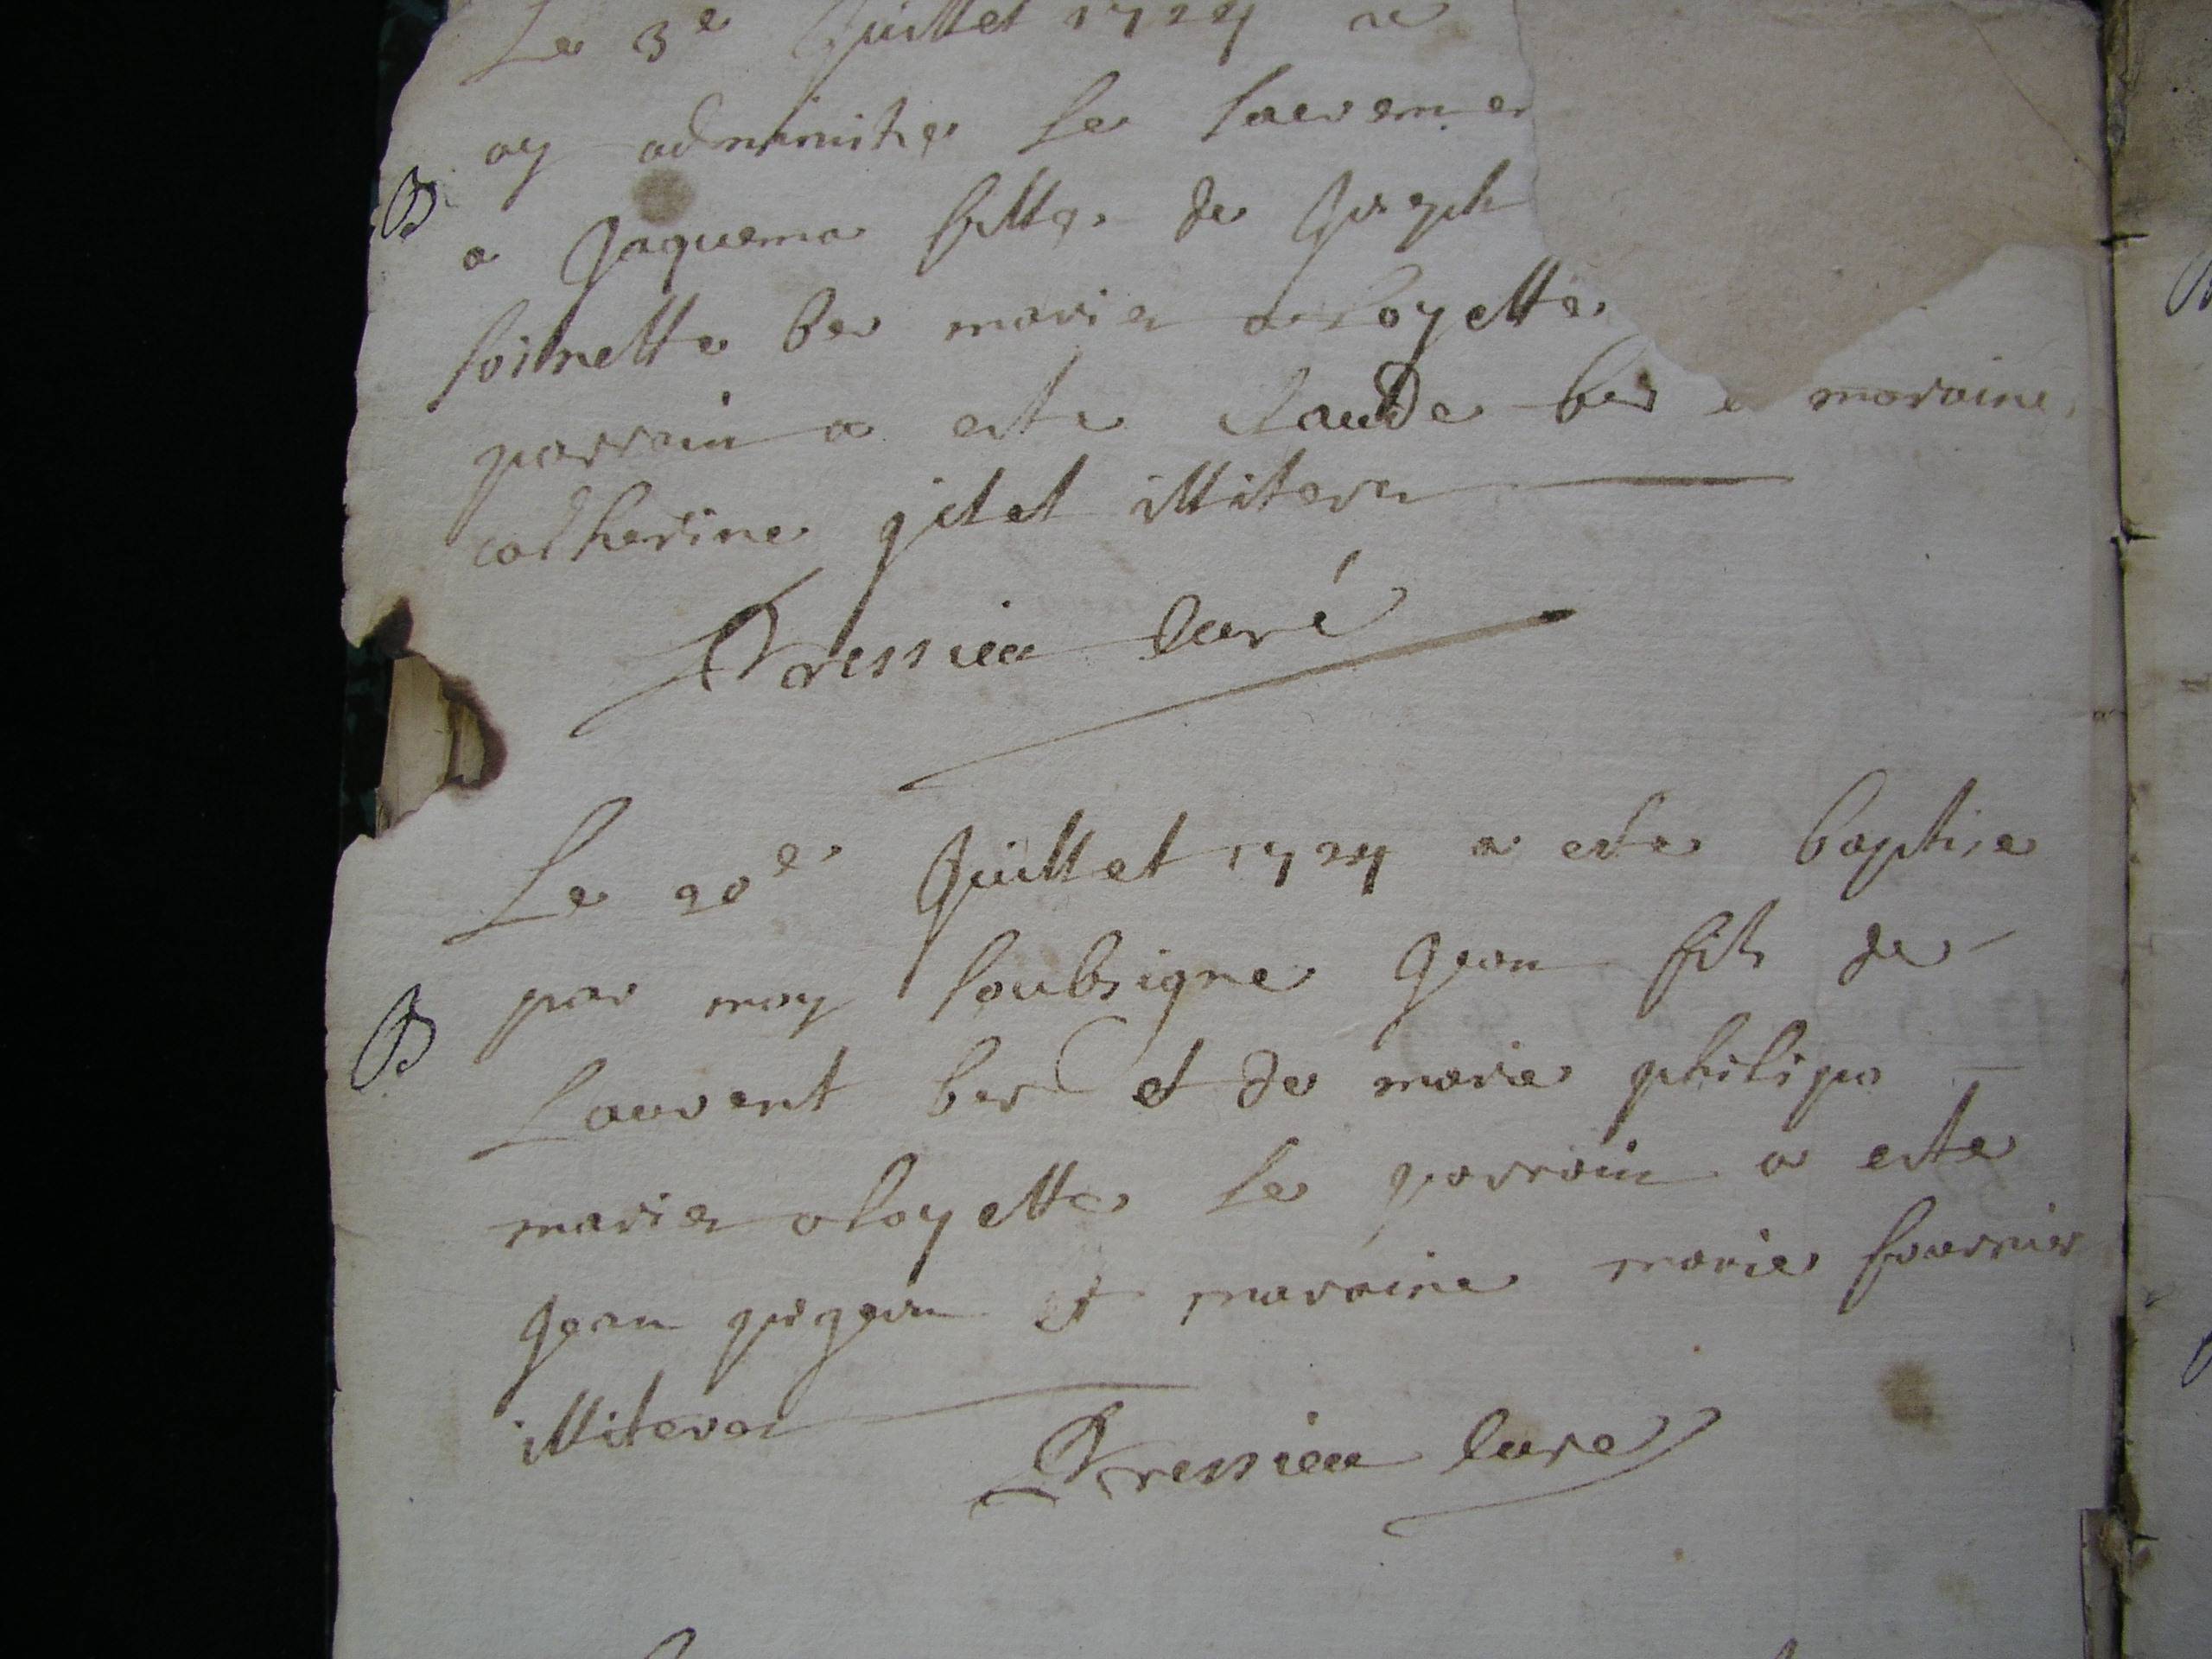 Le 3e Juillet 1724 a
ay administre le sacremen
B
a Jaquema fille de Joseph
foinette ber maries a loyette
parrain a este claude ber e maraine
catherine gitet illiteres
Dressieu Curé
Le 20e Juillet 1724 a este baptise
par moy soubsigne Jean fils de
B
Laurent ber et de marie philipa
maries a loyette le parrain a este
Jean et maraine marie fournier
illiteres
Dressieu Cure